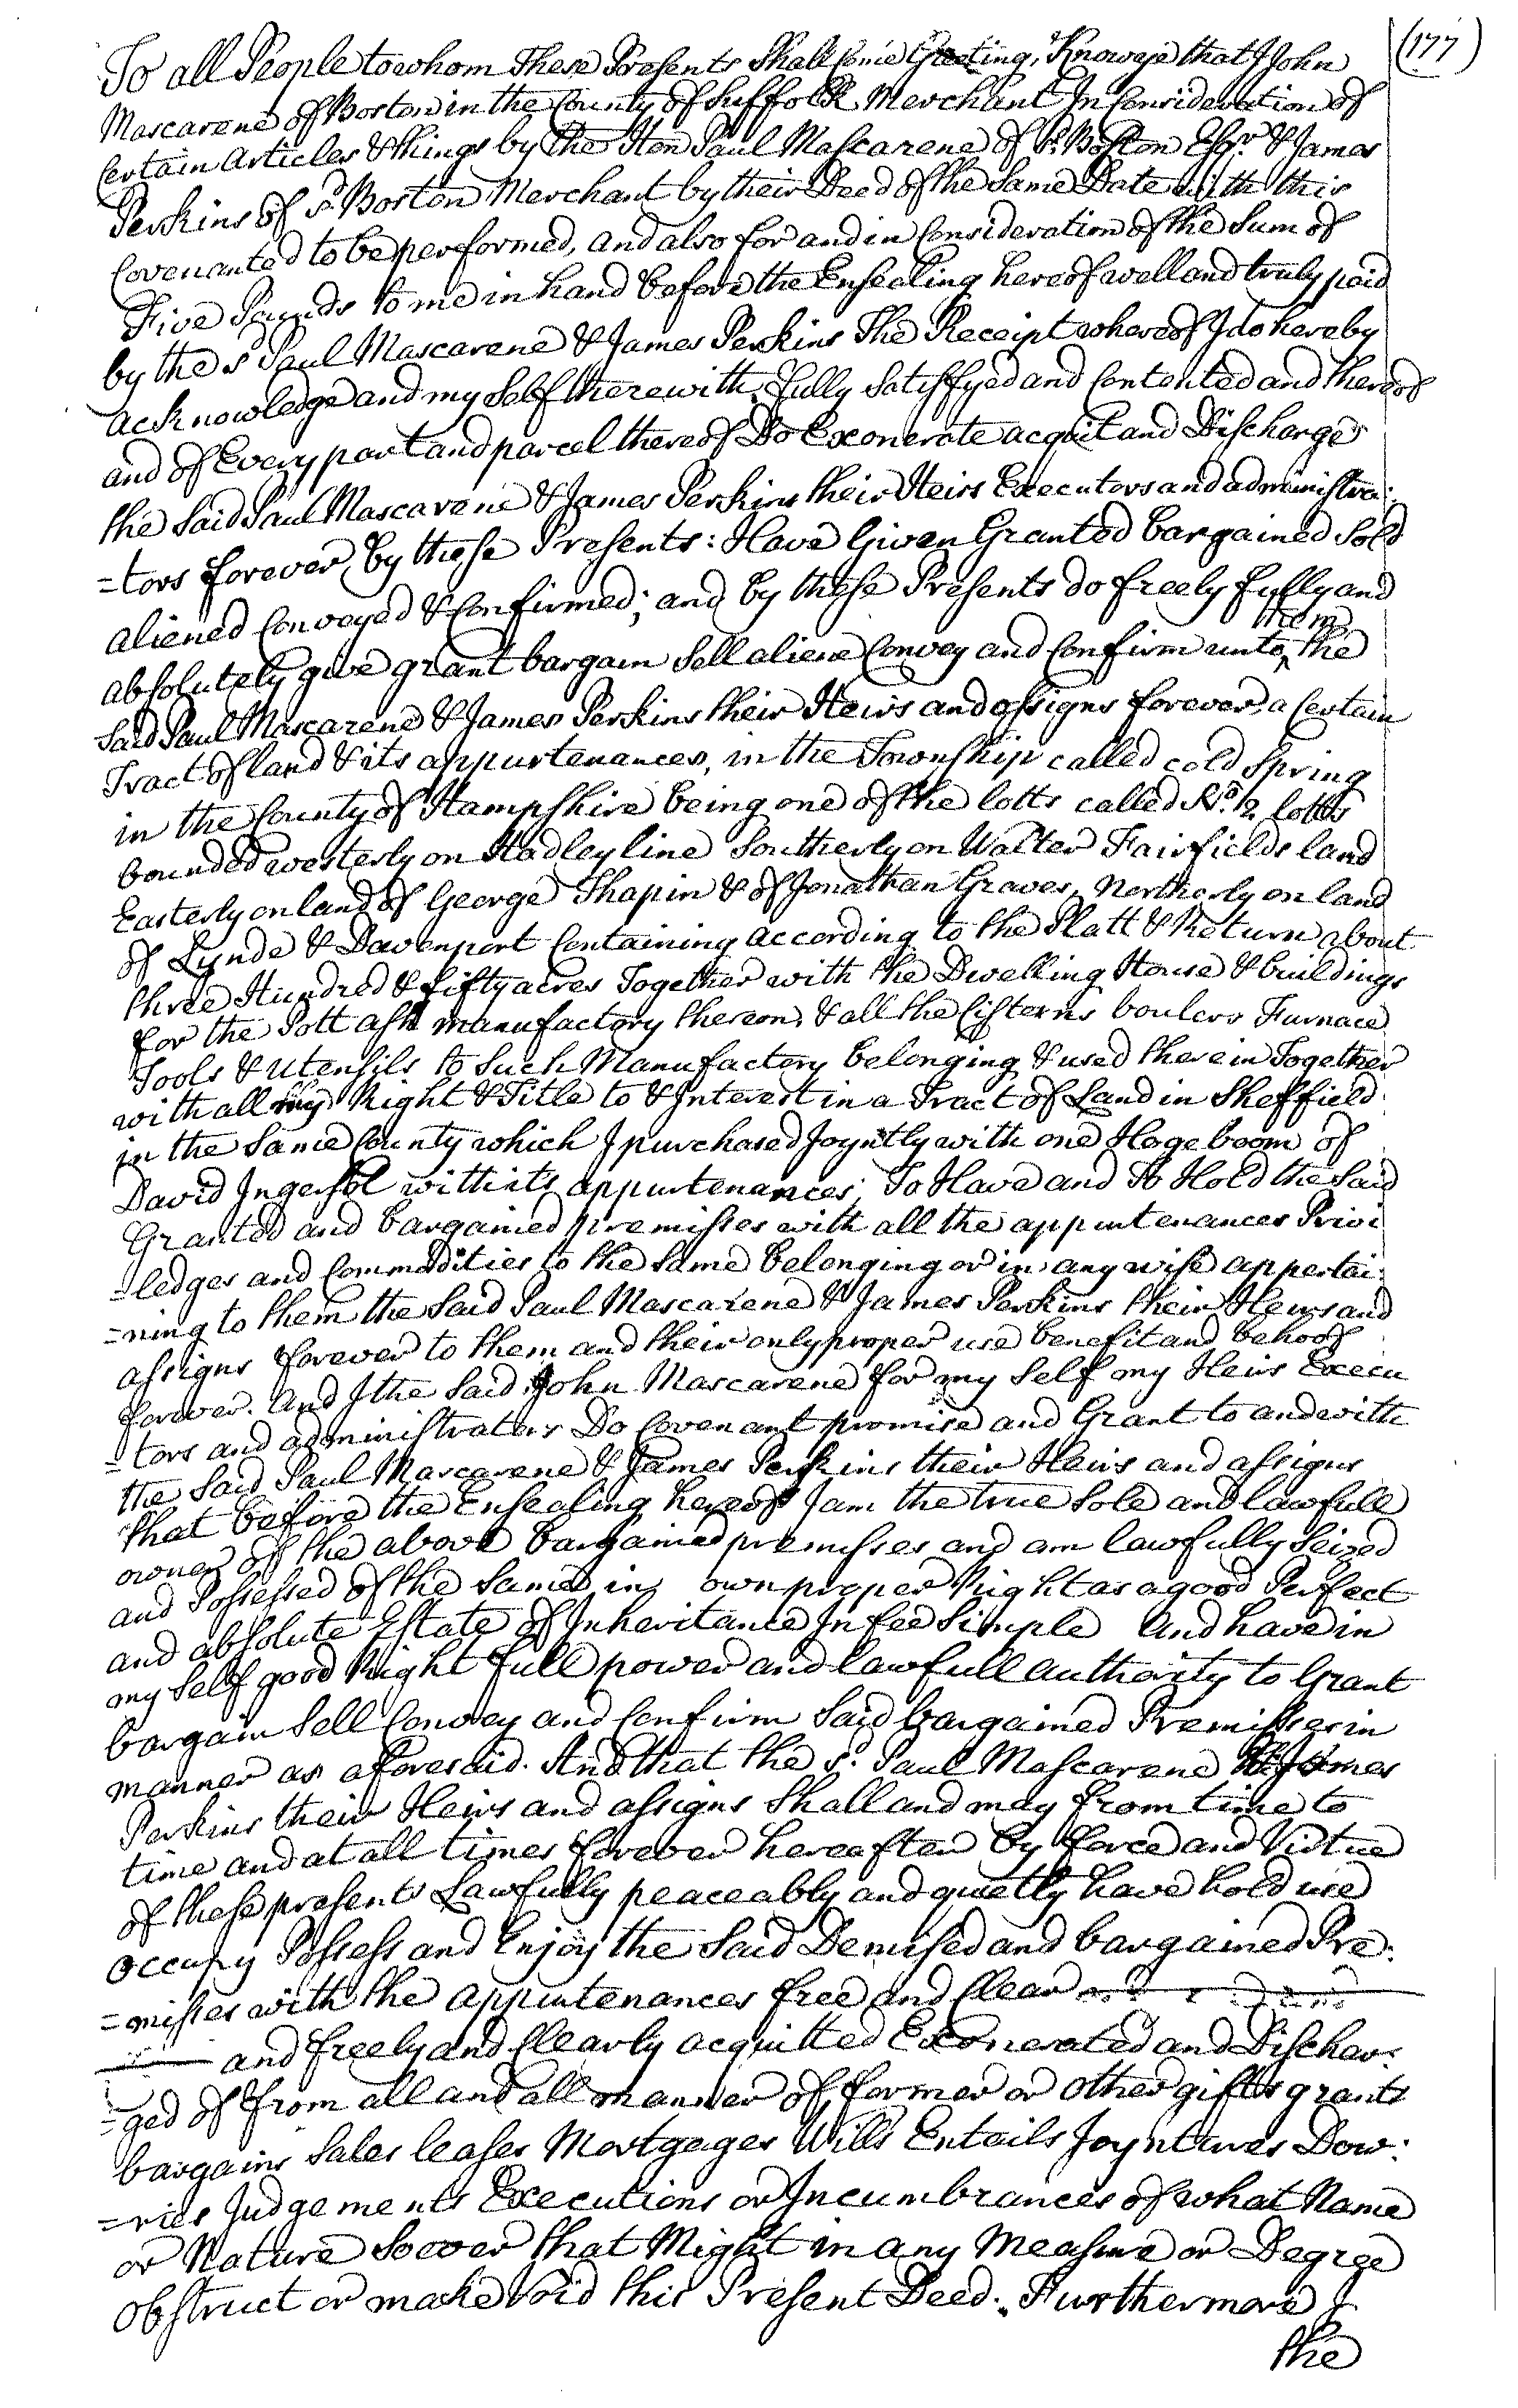 (177)
To all People to whom These Presents Shall Come Greeting, Know ye that I John
Mascarene of Boston in the County of Suffolk Merchant In Consideration of
Certain Articles & things by the Hon Paul Mascarene of sd. Boston Esqr. & James
Perkins of sd Boston Merchant by their Deed of the Same Date with this
Covenanted to be performed, and also for and in Consideration of the Sum of
Five Pounds to me in hand before the Ensealing hereof well and truly paid
by the sd Paul Mascarene & James Perkins The Receipt whereof I do hereby
acknowledge and my Self therewith Fully Satisfyed and Contented and thereof
and of Every part and parcel thereof Do Exonerate acquit and Discharge
the Said Paul Mascarene & James Perkins their Heirs Executors and administra:
=tors forever, by these Presents: Have Given Granted bargained Sold
aliened Conveyed & Confirmed; and by these Presents do freely fully and
absolutely give grant bargain Sell aliene Convey and Confirm unto ^them the
Said Paul Mascarene & James Perkins their Heirs and assigns forever, a Certain
Tract of land & its appurtenances, in the Township called cold Spring
in the County of Hampshire being one of the lotts called No. 2 lotts
bounded westerly on Hadley line Southerly on Walter Fairfields land
Easterly on land of George Shapin & of Jonathan Graves, Northerly on land
of Lynde & Davenport Containing according to the Platt & Return about
three Hundred & fifty acres Together with the Dwelling House & buildings
for the Pott ash manufactory thereon, & all the Cisterns boulers Furnace
Tools & Utensils to Such Manufactory belonging & used therein Together
with all my Right & Title to & Interest in a Tract of Land in Sheffield
in the Same County which I purchased Joyntly with one Hogeboom of
David Ingersol with its appurtenances; To Have and To Hold the Said
Granted and bargained premisses with all the appurtenances Privi
=ledges and Commodities to the same belonging or in any wise appertai:
=ning to them the Said Paul Mascarene & James Perkins their Heirs and
assigns forever to them and their only proper use benefit and behoof
forever. And I the Said John Mascarene for my Self my Heirs Execu
=tors and administrators Do Covenant promise and Grant to and with
the Said Paul Mascarene & James Perkins their Heirs and assigns
that before the Ensealing hereof I am the true Sole and lawfull
owner of the above bargained premisses and am lawfully Seized
and Possessed of the Same in own proper Right as a good Perfect
and absolute Estate of Inheritance In fee Simple And have in
my Self good Right full power and lawfull authority to Grant
bargain Sell Convey and Confirm Said bargained Premisses in
manner as aforesaid. And that the sd. Paul Mascarene & James
Perkins their Heirs and assigns Shall and may from time to
time and at all times forever hereafter by force and Virtue
of these presents Lawfully peaceably and quietly have hold use
occupy Possess and Enjoy the Said Demised and bargained Pre:
=misses with the appurtenances free and Clear
and freely and Clearly acquitted Exonerated and Dischar:
=ged of from all and all manner of former or other gifts grants
bargains Sales leases Mortgages Wills Entails Joyntures Dow:
=ries Judgements Executions or Incumbrances of what Name
or Nature Soever that Might in any Measure or Degree
obstruct or make Void this Present Deed. Furthermore I
the